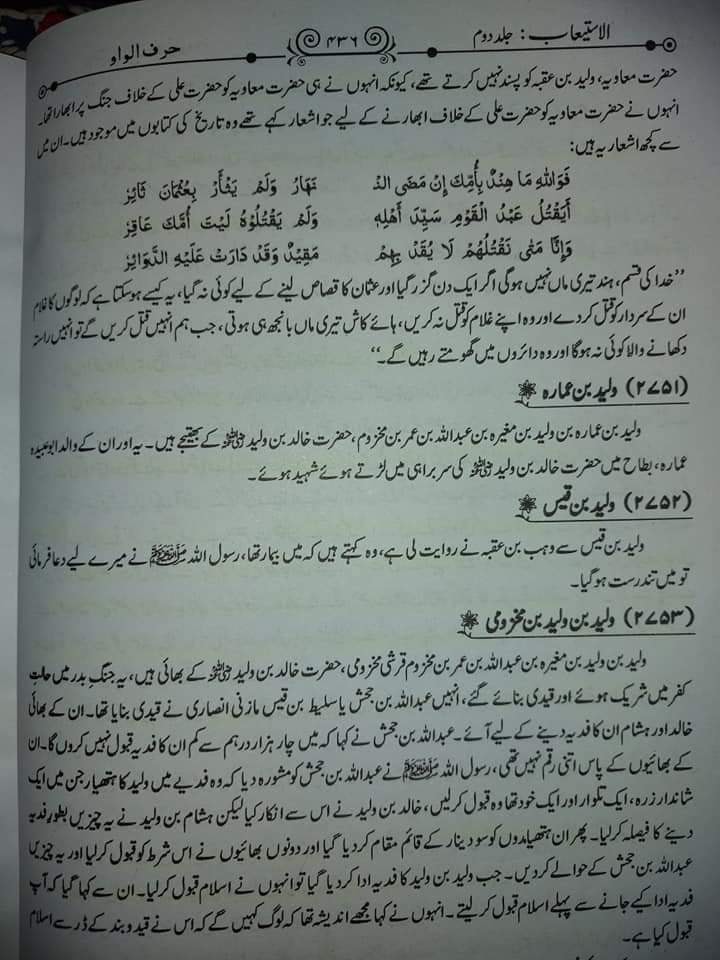 الاستیعاب: جلد دوم
۴۳۶
حرف الواو
حضرت معاویہ، ولید بن عقبہ کو پسند نہیں کرتے تھے، کیونکہ انہوں نے ہی حضرت معاویہ کو حضرت علی کے خلاف جنگ پر ابھارا تھا۔
انہوں نے حضرت معاویہ کو حضرت علی کے خلاف ابھارنے کے لیے جو اشعار کہے تھے وہ تاریخ کی کتابوں میں موجود ہیں۔ ان میں
سے کچھ اشعار یہ ہیں:
فَوَاللهِ مَا هِنْدٌ بِأُمِّكَ إِنْ مَضَى الذ نَهَارُ وَلَمْ يَثْأَرْ بِعُثْمَانَ ثَائِرُ
أَيَقْتُلُ عَبْدُ الْقَوْمِ سَيِّدَ أَهْلِهٖ وَلَمْ يَقْتُلُوْهُ لَيْتَ أُمَّكَ عَاقِرُ
وَإِنَّا مَتٰى نَقْتُلْهُمْ لَا يُقَدْ بِهِمْ مُقِيْدٌ وَقَدْ دَارَتْ عَلَيْهِ الدَّوَائِرُ
”خدا کی قسم، ہند تیری ماں نہیں ہوگی اگر ایک دن گزر گیا اور عثمان کا قصاص لینے کے لیے کوئی نہ گیا، یہ کیسے ہو سکتا ہے کہ لوگوں کا غلام
ان کے سردار کو قتل کر دے اور وہ اپنے غلام کو قتل نہ کریں، ہائے کاش تیری ماں بانجھ ہی ہوتی، جب ہم انہیں قتل کریں گے تو انہیں راستہ
دکھانے والا کوئی نہ ہوگا اور وہ دائروں میں گھومتے رہیں گے۔“
(۲۷۵۱) ولید بن عمارہ
ولید بن عمارہ بن ولید بن مغیرہ بن عبداللہ بن عمر بن مخزوم، حضرت خالد بن ولید رضی اللہ عنہ کے بھتیجے ہیں۔ یہ اور ان کے والد ابوعبیدہ
عمارہ، بطاح میں حضرت خالد بن ولید رضی اللہ عنہ کی سربراہی میں لڑتے ہوئے شہید ہوئے۔
(۲۷۵۲) ولید بن قیس
ولید بن قیس سے وہب بن عقبہ نے روایت لی ہے، وہ کہتے ہیں کہ میں بیمار تھا، رسول اللہ ﷺ نے میرے لیے دعا فرمائی
تو میں تندرست ہو گیا۔
(۲۷۵۳) ولید بن ولید بن مخزومی
ولید بن ولید بن مغیرہ بن عبداللہ بن عمر بن مخزوم قرشی مخزومی، حضرت خالد بن ولید رضی اللہ عنہ کے بھائی ہیں، یہ جنگِ بدر میں حالتِ
کفر میں شریک ہوئے اور قیدی بنائے گئے، انہیں عبداللہ بن جحش یا سلیط بن قیس مازنی انصاری نے قیدی بنایا تھا۔ ان کے بھائی
خالد اور ہشام ان کا فدیہ دینے کے لیے آئے۔ عبداللہ بن جحش نے کہا کہ میں چار ہزار درہم سے کم ان کا فدیہ قبول نہیں کروں گا۔ ان
کے بھائیوں کے پاس اتنی رقم نہیں تھی، رسول اللہ ﷺ نے عبداللہ بن جحش کو مشورہ دیا کہ وہ فدیے میں ولید کا ہتھیار جن میں ایک
شاندار زرہ، ایک تلوار اور ایک خود تھا وہ قبول کرلیں، خالد بن ولید نے اس سے انکار کیا لیکن ہشام بن ولید نے یہ چیزیں بطورِ فدیہ
دینے کا فیصلہ کرلیا۔ پھر ان ہتھیاروں کو سو دینار کے قائم مقام کردیا گیا اور دونوں بھائیوں نے اس شرط کو قبول کرلیا اور یہ چیزیں
عبداللہ بن جحش کے حوالے کردیں۔ جب ولید بن ولید کا فدیہ ادا کردیا گیا تو انہوں نے اسلام قبول کرلیا۔ ان سے کہا گیا کہ آپ
فدیہ ادا کیے جانے سے پہلے اسلام قبول کرلیتے۔ انہوں نے کہا مجھے اندیشہ تھا کہ لوگ کہیں گے کہ اس نے قید و بند کے ڈر سے اسلام
قبول کیا ہے۔